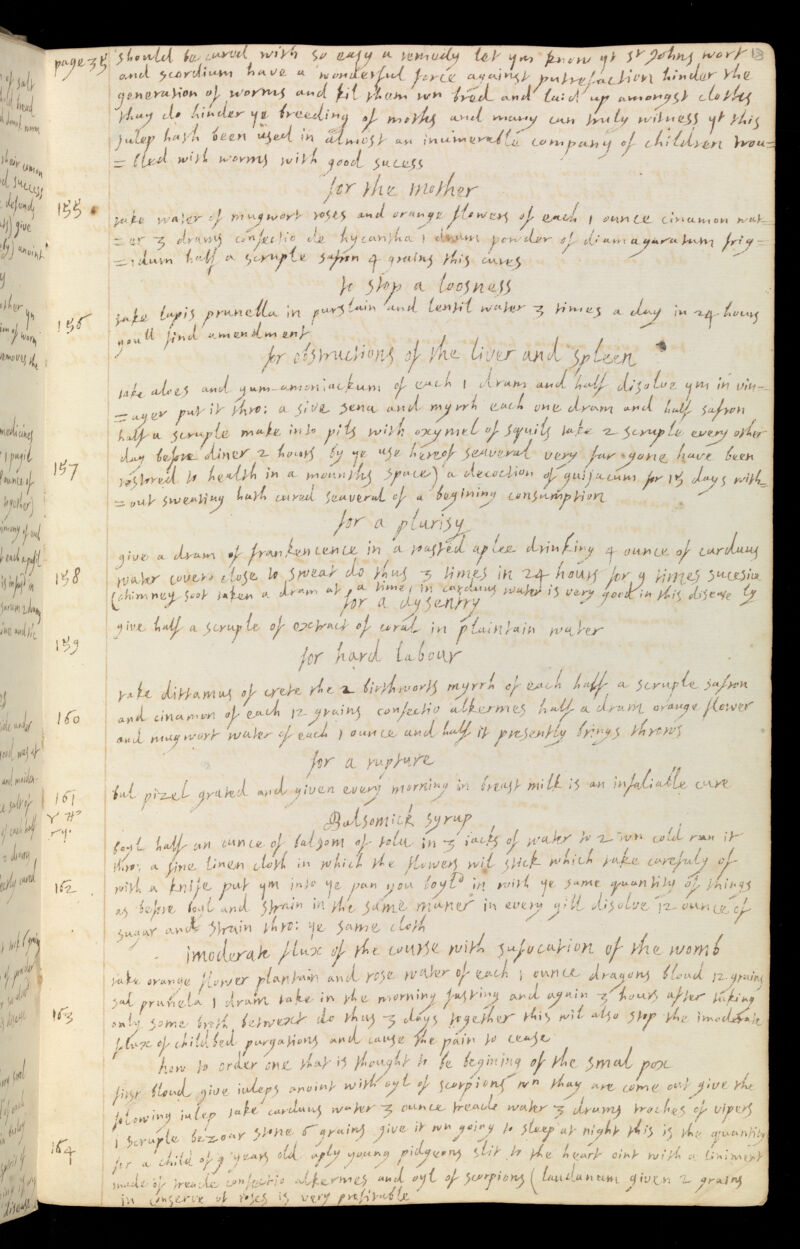 page 35 should be cured with so easy a remedy let ym know yt St Johns wort
and scordium have a wonderful force against putrefaction hinder the
generation of worms and kil them wn bred and laid up amongst cloths
thay do hinder ye breeding of moths and many can truly witness yt this
julep hath been used in almost an inumerable company of children trou=
=bled with worms with good sucess
for the mother
155 take water of mugwort roses and orange flowers of each 1 ounce cinamon wat=
=er 3 drams confectio de hycantha 1 dram powder of diamagaratum frig=
=idum half a scruple safron 4 grains this cures
to stop a loosness
156 take lapis prunella in purslain and lentil water 3 times a day in 24 hours
youll find amendment
for obstructions of the liver and spleen
take aloes and gum amoniackum of each 1 dram and half disolve ym in vin=
=ager put it thro: a sive sena and myrrh each one dram and half safron
half a scruple make into pils with oxymel of squils take 2 scruple every other
day before diner 2 hours by ye use hereof seaveral very far gone have been
157 restored to health in a mounths space) a decoction of guijacum for 15 days with=
=out sweating hath cured seaveral of a begining consumption
for a plurisy
give a dram of frankencence in a roasted aplee drinking 4 ounce of carduus
158 water cover close to sweat do thus 3 times in 24 hours for 9 times sucesive
(chimney soot taken a dram at a time in carduus water is very good in this disease ty
for a dysentry
159 give half a scruple of extract of coral in plaintain water
for hard labour
take dittamus of crete the 2 birthworts myrrh of each half a scruple safron
160 and cinamon of each 12 grains confectio alkermes half a dram orange flower
and mugwort water of each 1 ounce and half it presently brings throws
for a rupture
161 bul pizel grated and given every morning in breast milk is an infaliable cure
Balsomick syrup
boyl half an ounce of balsom of tolu in 3 jacks of water to 2 wn cold run it
thro: a fine linen cloth in which the flowers wil stick which take carefuly of
162 with a knife put ym into ye pan you boyld in with ye same quantity of things
as before boyl and strain in the same maner in every gill disolve 12 ounce of
sugar and strain thro: ye same cloth
imoderate flux of the course with sufocation of the womb
take orange flower plantain and rose water of each 1 ounce dragons bloud 12 grains
163 sal prunela 1 dram take in the morning fasting and again 3 hours after taking
only some broth betwext do thus 3 days together this wil also stop the imoderate
flux of childbed purgations and cause the pain to cease
how to order one that is thought to be begining of the smal pox
first bloud give iuleps anoint with oyl of scorpions wn thay are come out give the
folowing iulep take carduus water 3 ounce treacle water 3 drams troches of vipers
1 scruple bezoar stone 6 grains give it wn going to sleep at night this is the quantity
164 for a child of 9 years old aply young pidgeons slit to the heart oint with a liniment
made of treacle confectio alkermes and oyl of scorpions (laudanum given 2 grains
in conserve of roses is very profitable